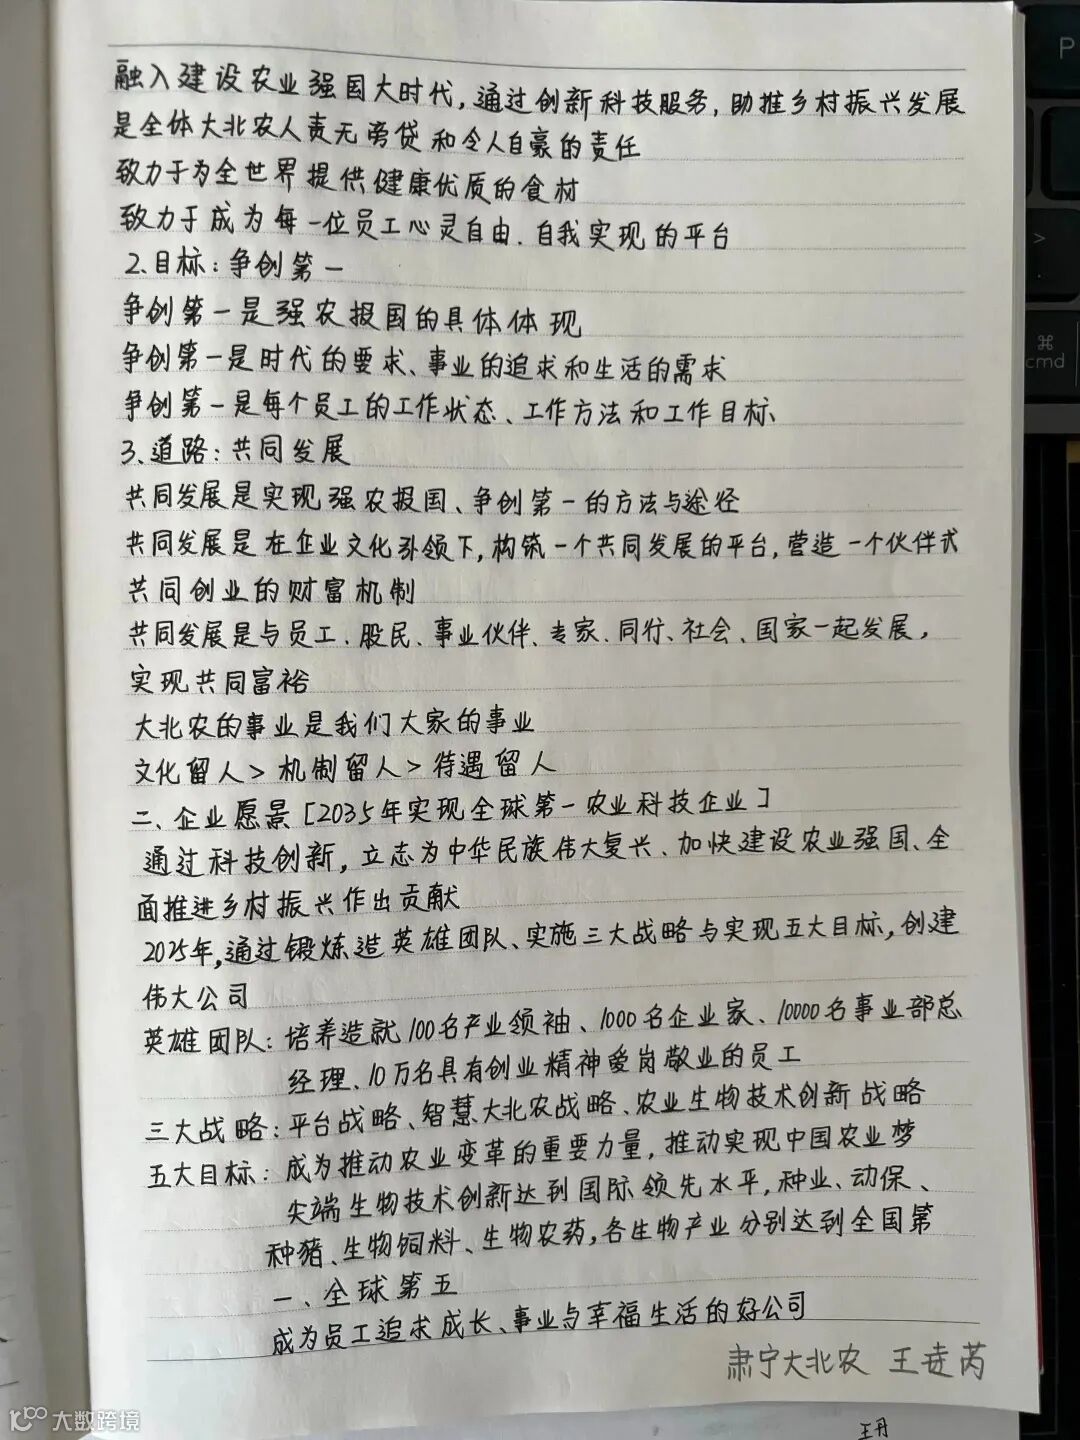 融入建设农业强国大时代,通过创新科技服务,助推乡村振兴发展
是全体大北农人责无旁贷和令人自豪的责任
致力于为全世界提供健康优质的食材
致力于成为每一位员工心灵自由、自我实现的平台
2.目标:争创第一
争创第一是强农报国的具体体现
争创第一是时代的要求、事业的追求和生活的需求
争创第一是每个员工的工作状态、工作方法和工作目标、
3、道路:共同发展
共同发展是实现强农报国、争创第一的方法与途径
共同发展是在企业文化引领下,构筑一个共同发展的平台,营造一个伙伴式
共同创业的财富机制
共同发展是与员工、股民、事业伙伴、专家、同行、社会、国家一起发展,
实现共同富裕
大北农的事业是我们大家的事业
文化留人>机制留人>待遇留人
二、企业愿景[2035年实现全球第一农业科技企业]
通过科技创新,立志为中华民族伟大复兴、加快建设农业强国、全
面推进乡村振兴作出贡献
2025年,通过锻炼造英雄团队、实施三大战略与实现五大目标,创建
伟大公司
英雄团队:培养造就100名产业领袖、1000名企业家、10000名事业部总
经理、10万名具有创业精神爱岗敬业的员工
三大战略:平台战略、智慧大北农战略、农业生物技术创新战略
五大目标:成为推动农业变革的重要力量,推动实现中国农业梦
尖端生物技术创新达到国际领先水平,种业、动保、
种猪、生物饲料、生物农药,各生物产业分别达到全国第
一、全球第五
成为员工追求成长、事业与幸福生活的好公司
肃宁大北农 王芮
王丹
P
>
⌘
cmd
大数跨境